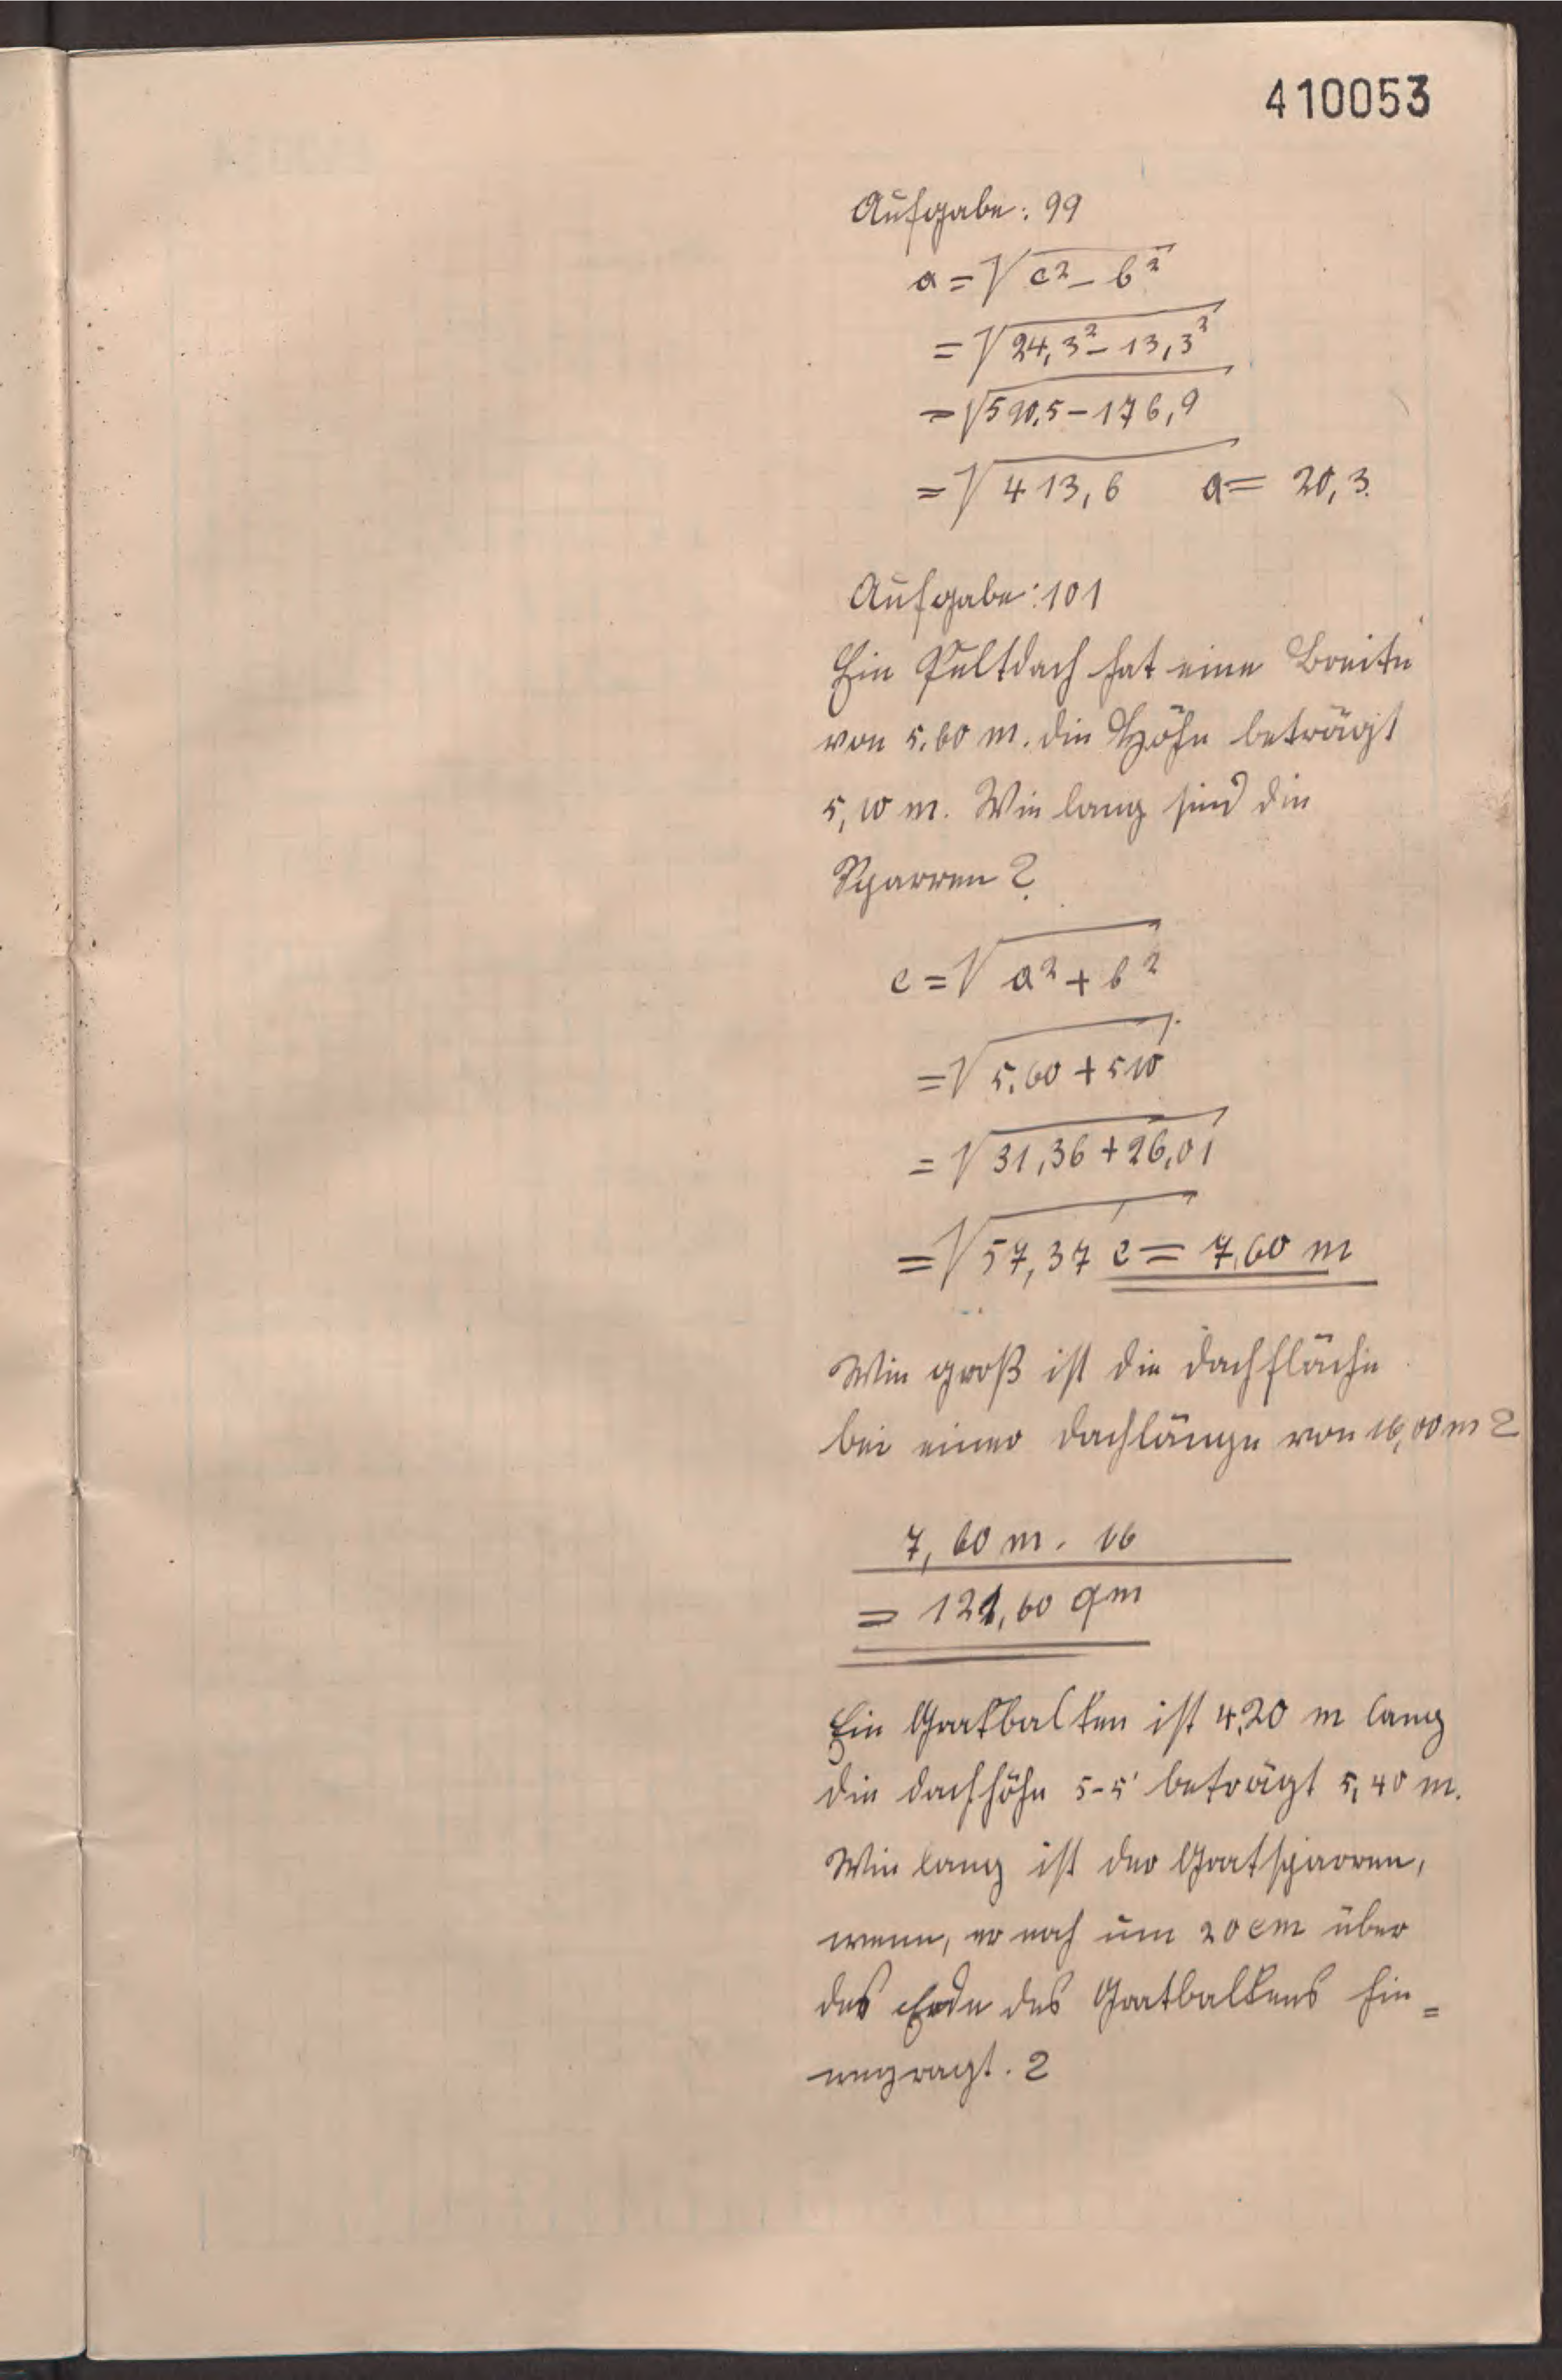 410053
Aufgabe: 99
a = √c² - b²
= √24,3² - 13,3²
= √590,5 - 176,9
= √413,6 a = 20,3.
Aufgabe: 101
Ein Pultdach hat eine Breite
von 5,60 m. die Höhe beträgt
5,10 m. Wie lang sind die
Sparren?
c = √a² + b²
= √5,60 + 510
= √31,36 + 26,01
= √57,37 c = 7,60 m
Wie groß ist die Dachfläche
bei einer Dachlänge von 16,00 m?
7,60 m. 16
= 121,60 qm
Ein Gratbalken ist 4,20 m lang
die Dachhöhe 5-5' beträgt 5,40 m.
Wie lang ist der Gratsparren,
wenn, er noch um 20 cm über
das Ende des Gratbalkens hin=
wegragt.?